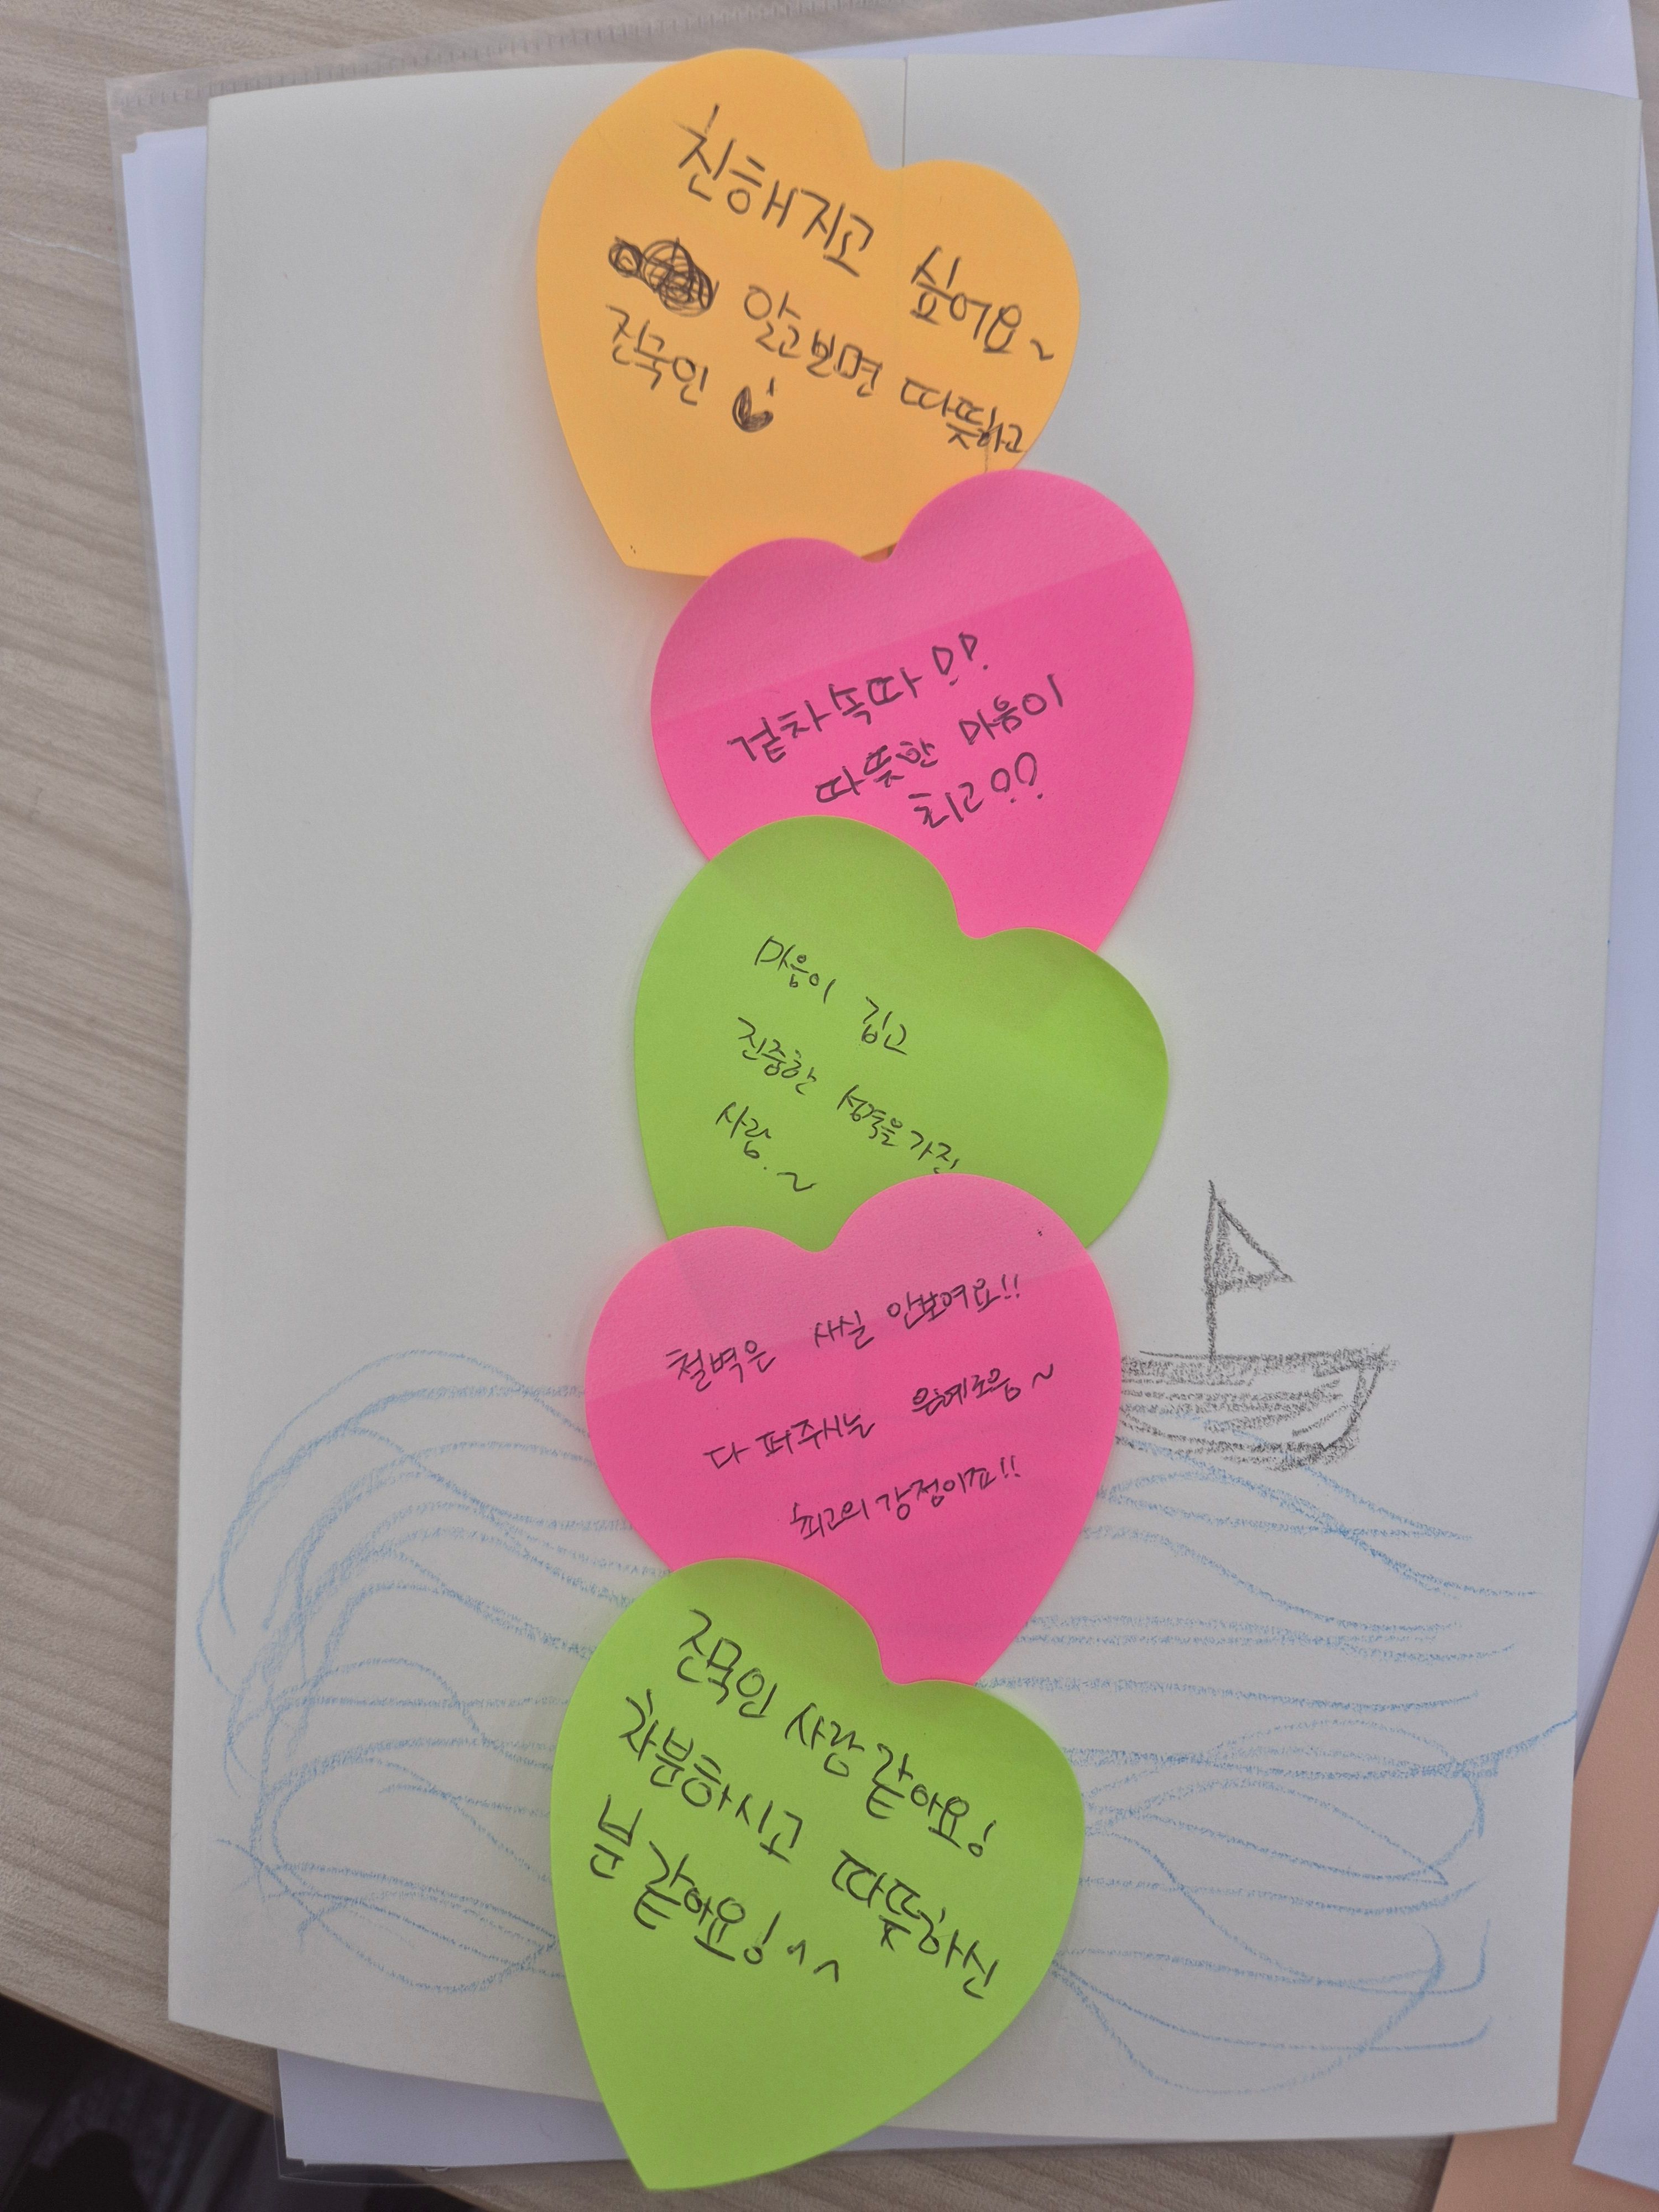 친해지고 싶어요~
알고보면 따뜻하고
진국인
겉차속따!!
따뜻한 마음이
최고!!
마음이 깊고
진중한 성격을 가진
사람.~
철벽은 사실 안보여요!!
다 퍼주시는 은혜로움~
최고의 강점이죠!!
진국인 사람 같아요!
차분하시고 따뜻하신
분 같아요! ^^